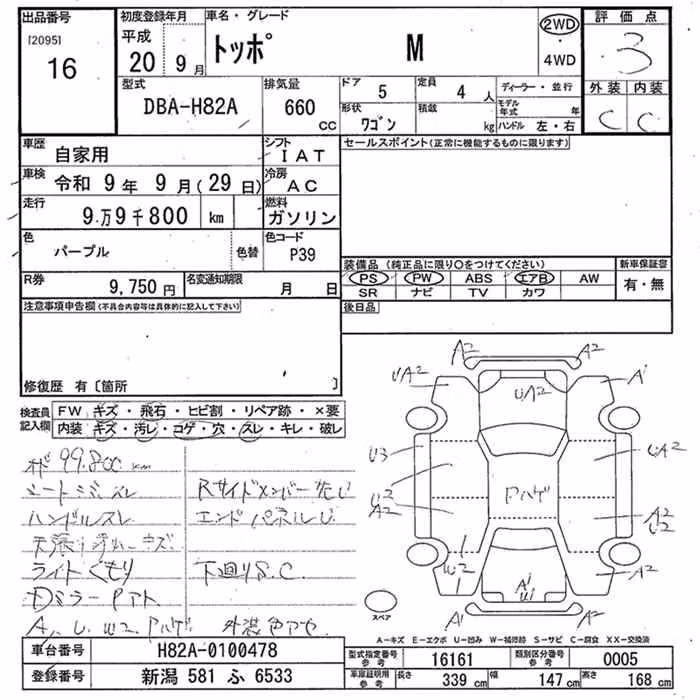 出品番号
[2095]
16
初度登録年月
平成
20 9月
車名・グレード
トッポ M
2WD
・
4WD
評価点
3
外装 内装
C C
型式
DBA-H82A
排気量
660
CC
ドア
5
定員
4 人
ディーラー・並行
形状
ワゴン
積載
kg
モデル
年式 年
ハンドル 左・右
車歴
自家用
シフト
IAT
車検
令和 9年 9月(29日)
冷房
AC
走行
9万9千800 km
燃料
ガソリン
色
パープル
色替
色コード
P39
R券
9,750円
名変通知期限
月 日
セールスポイント(正常に機能するものに限ります)
装備品 (純正品に限り○をつけてください)
PS PW ABS エアB AW
SR ナビ TV カワ
新車保証書
有・無
後日品
注意事項申告欄(不具合内容等は具体的に記入して下さい)
修復歴 有〔箇所 〕
検査員
記入欄
FW キズ・飛石・ヒビ割・リペア跡・×要
内装 キズ・汚レ・コゲ・穴・スレ・キレ・破レ
99.800 km
シートシミスレ
ハンドルスレ
ライトくもり
A. U. W2. Pハゲ 外装色アセ
Rサイドメンバー
エンドパネルU
下廻りS.C
A2 A2
UA2 UA2 A1
U3 UA2
U2
A2 Pハゲ A2
U2
W2 A1
U1 A2
A1 A2
スペア
A-キズ E-エクボ U-凹み W-補修跡 S-サビ C-腐食 XX-交換済
車台番号 H82A-0100478
登録番号 新潟 581 ふ 6533
型式指定番号
参考
16161
類別区分番号
参考
0005
車庫証明用
参考
長さ 339 cm
幅 147 cm
高さ 168 cm